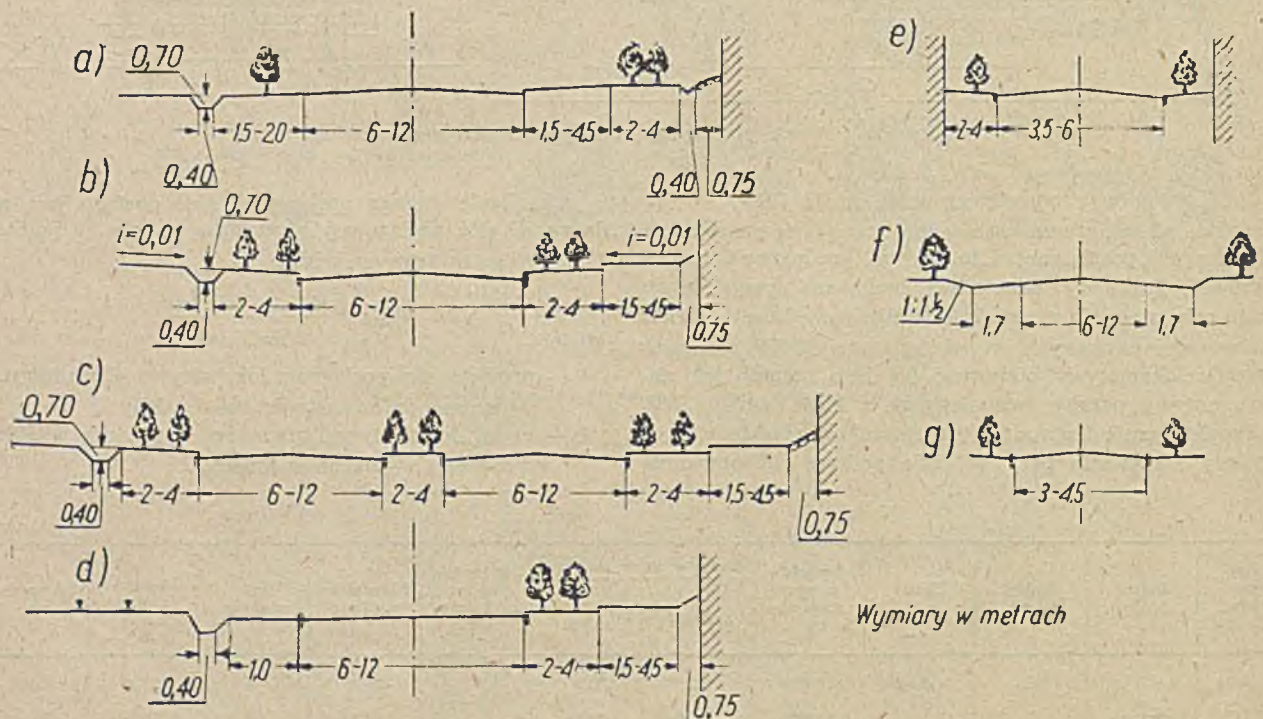 a)
0,70
1,5-2,0
6-12
1,5-4,5
2-4
0,40
0,40
0,75
b)
i=0,01
0,70
i=0,01
2-4
6-12
2-4
1,5-4,5
0,40
0,75
c)
0,70
2-4
6-12
2-4
6-12
2-4
1,5-4,5
0,40
0,75
d)
1,0
6-12
2-4
1,5-4,5
0,40
0,75
e)
2-4
3,5-6
f)
1:1½
1,7
6-12
1,7
g)
3-4,5
Wymiary w metrach